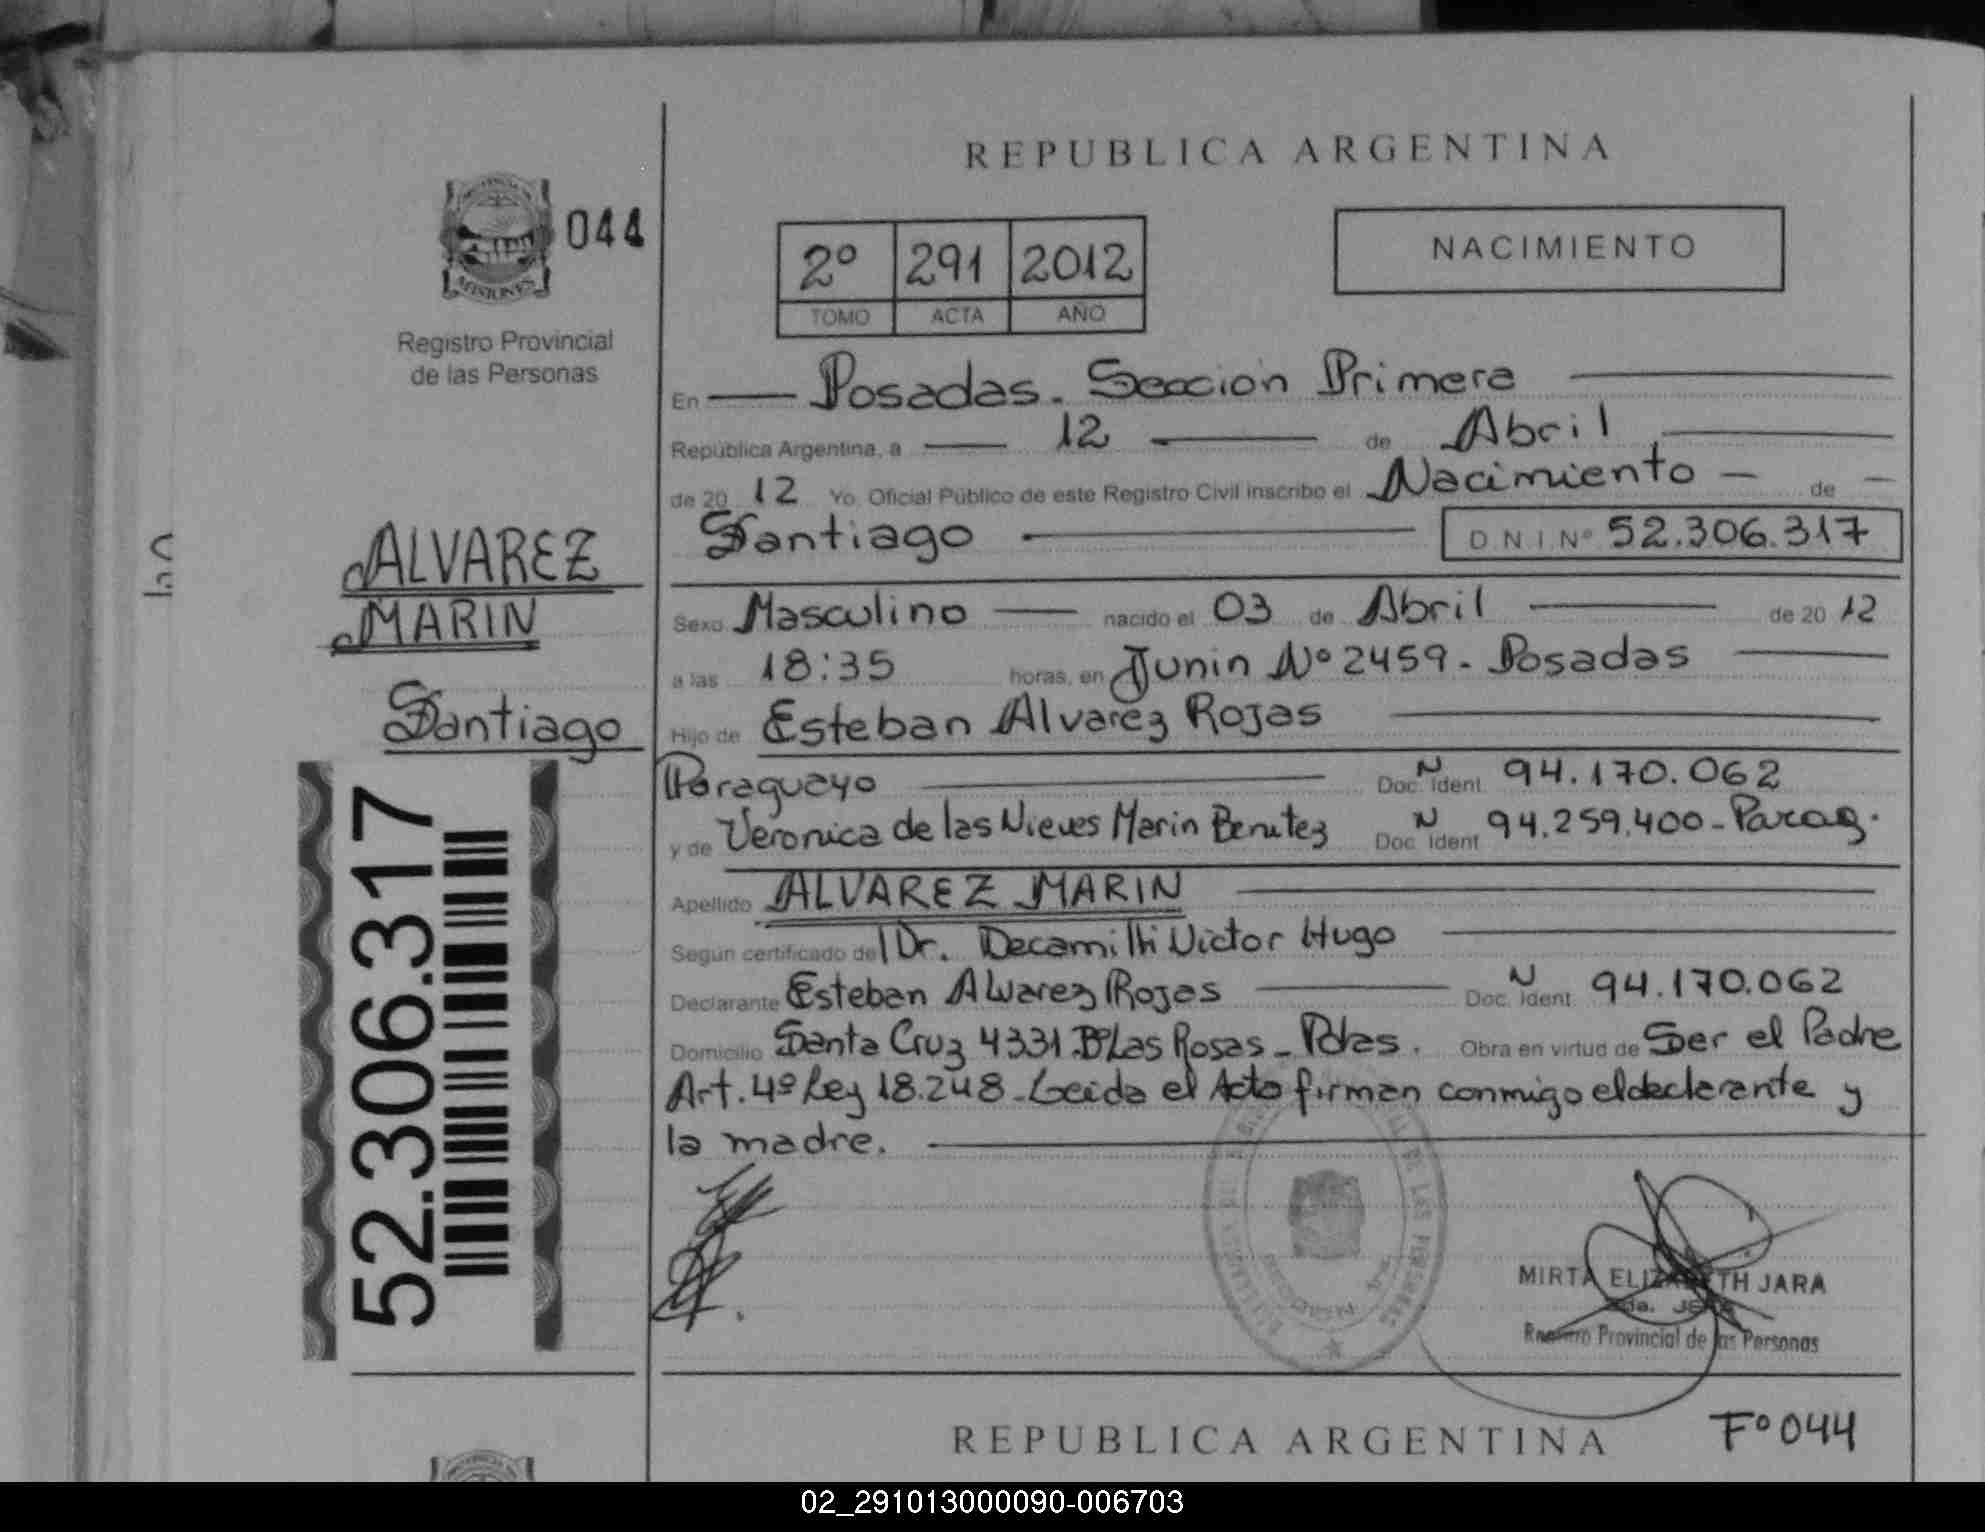 REPUBLICA ARGENTINA
044
MISIONES
Registro Provincial
de las Personas
2º 291 2012
TOMO ACTA AÑO
NACIMIENTO
En Posadas. Seccion Primera
República Argentina, a 12 de Abril
de 20 12 Yo, Oficial Público de este Registro Civil inscribo el Nacimiento - de -
Santiago D.N.I. Nº 52.306.317
ALVAREZ
MARIN
Santiago
52.306.317
Sexo Masculino nacido el 03 de Abril de 20 12
a las 18:35 horas, en Junin Nº 2459 - Posadas
Hijo de Esteban Alvarez Rojas
Paraguayo Doc. Ident. N 94.170.062
y de Veronica de las Nieves Marin Benitez Doc. Ident. N 94.259.400 - Parag.
Apellido ALVAREZ MARIN
Según certificado de Dr. Decamilli Victor Hugo
Declarante Esteban Alvarez Rojas Doc. Ident. N 94.170.062
Domicilio Santa Cruz 4331 Bº Las Rosas - Pdas. Obra en virtud de Ser el Padre
Art. 4º Ley 18.248 - Leida el Acta firman conmigo el declarante y
la madre.
MIRTA ELIZABETH JARA
Registro Provincial de las Personas
REPUBLICA ARGENTINA
Fº 044
02_291013000090-006703